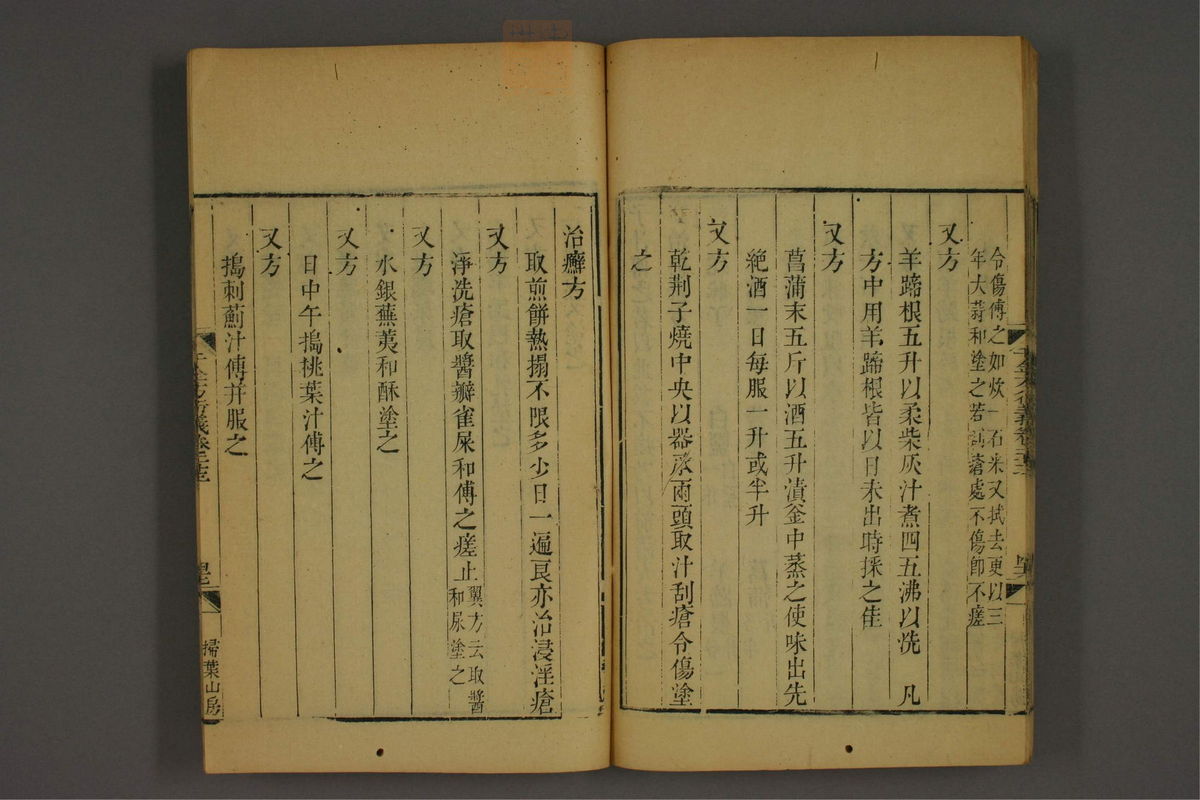 令傷傅之如炊一石米又拭去更以三
年大蒜和塗之若試瘡處不傷即不瘥
又方
羊蹄根五升以柔柴灰汁煮四五沸以洗 凡
方中用羊蹄根皆以日未出時採之佳
又方
菖蒲末五斤以酒五升漬釜中蒸之使味出先
絶酒一日每服一升或半升
又方
乾荆子燒中央以器承兩頭取汁刮瘡令傷塗
之
治癬方
取煎餅熱搨不限多少日一遍良亦治浸淫瘡
又方
淨洗瘡取醬瓣雀屎和傅之瘥止翼方云取醬
和尿塗之
又方
水銀蕪荑和酥塗之
又方
日中午搗桃葉汁傅之
又方
搗刺薊汁傅并服之
千金方衍義卷
掃葉山房